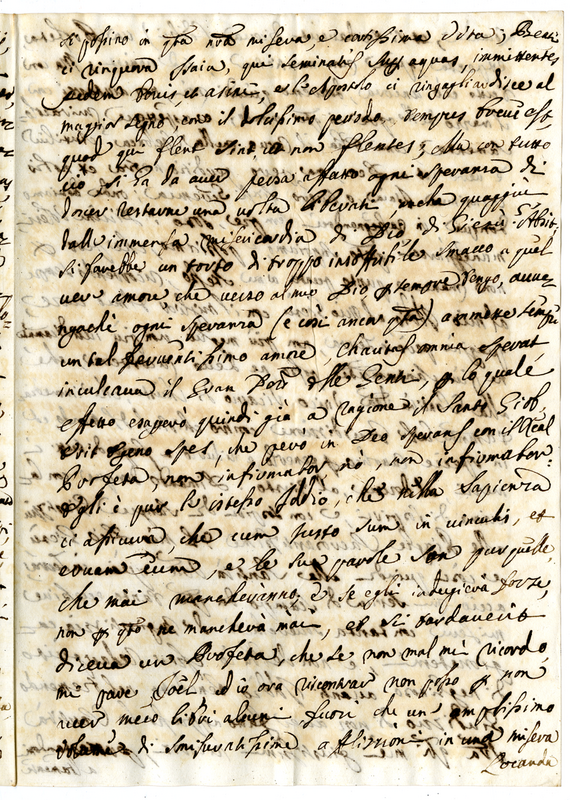 si possino in qta nra misera, e cortissima Vita; Beati
ci rinquora Isaia, qui seminatis supr aquas, immittentes
pedem bovis, et asini; e l'Apostolo ci ringagliardisce al
maggior segno con il dolcissimo periodo. Tempus breve est,
quod qui flent sint, ut non flentes; Ma con tutto
ciò si ha da aver persa affatto ogni speranza di
dover restarne una volta liberati anche quaggiù
dall'immensa misericordia di Dio di Giesù? Absit.
Si farebbe un torto di troppo insoffribile smacco a quel
ver amore che verso al mio Dio sempre tengo, avve-
ngache ogni speranza (e così anco qta) ammette sempre
un tal ferventissimo amore, Charitas omnia sperat
inculcava il Gran Dotre delle Genti, p lo quale
effetto esagerò quindi già a ragione il Santo Giob
spes, che però in Deo sperans con il Real
Profeta non infirmabor nò, non infirmabor.
Egli è pur lo istesso Iddio, che nella Sapienza
ci assicura, che cum Justo sum in vinculis, et
eum, e le sue parole son pur quelle,
che mai mancheranno; E se egli indugierà forse,
non p qto ne mancherà mai, et si tardaverit
diceva un Profeta, che se non mal mi ricordo,
mi pare Joel ed io ora riscontrar non posso p non
aver meco libri alcuni fuori che un amplissimo
volume di smisuratissime afflizioni in una misera
Locanda